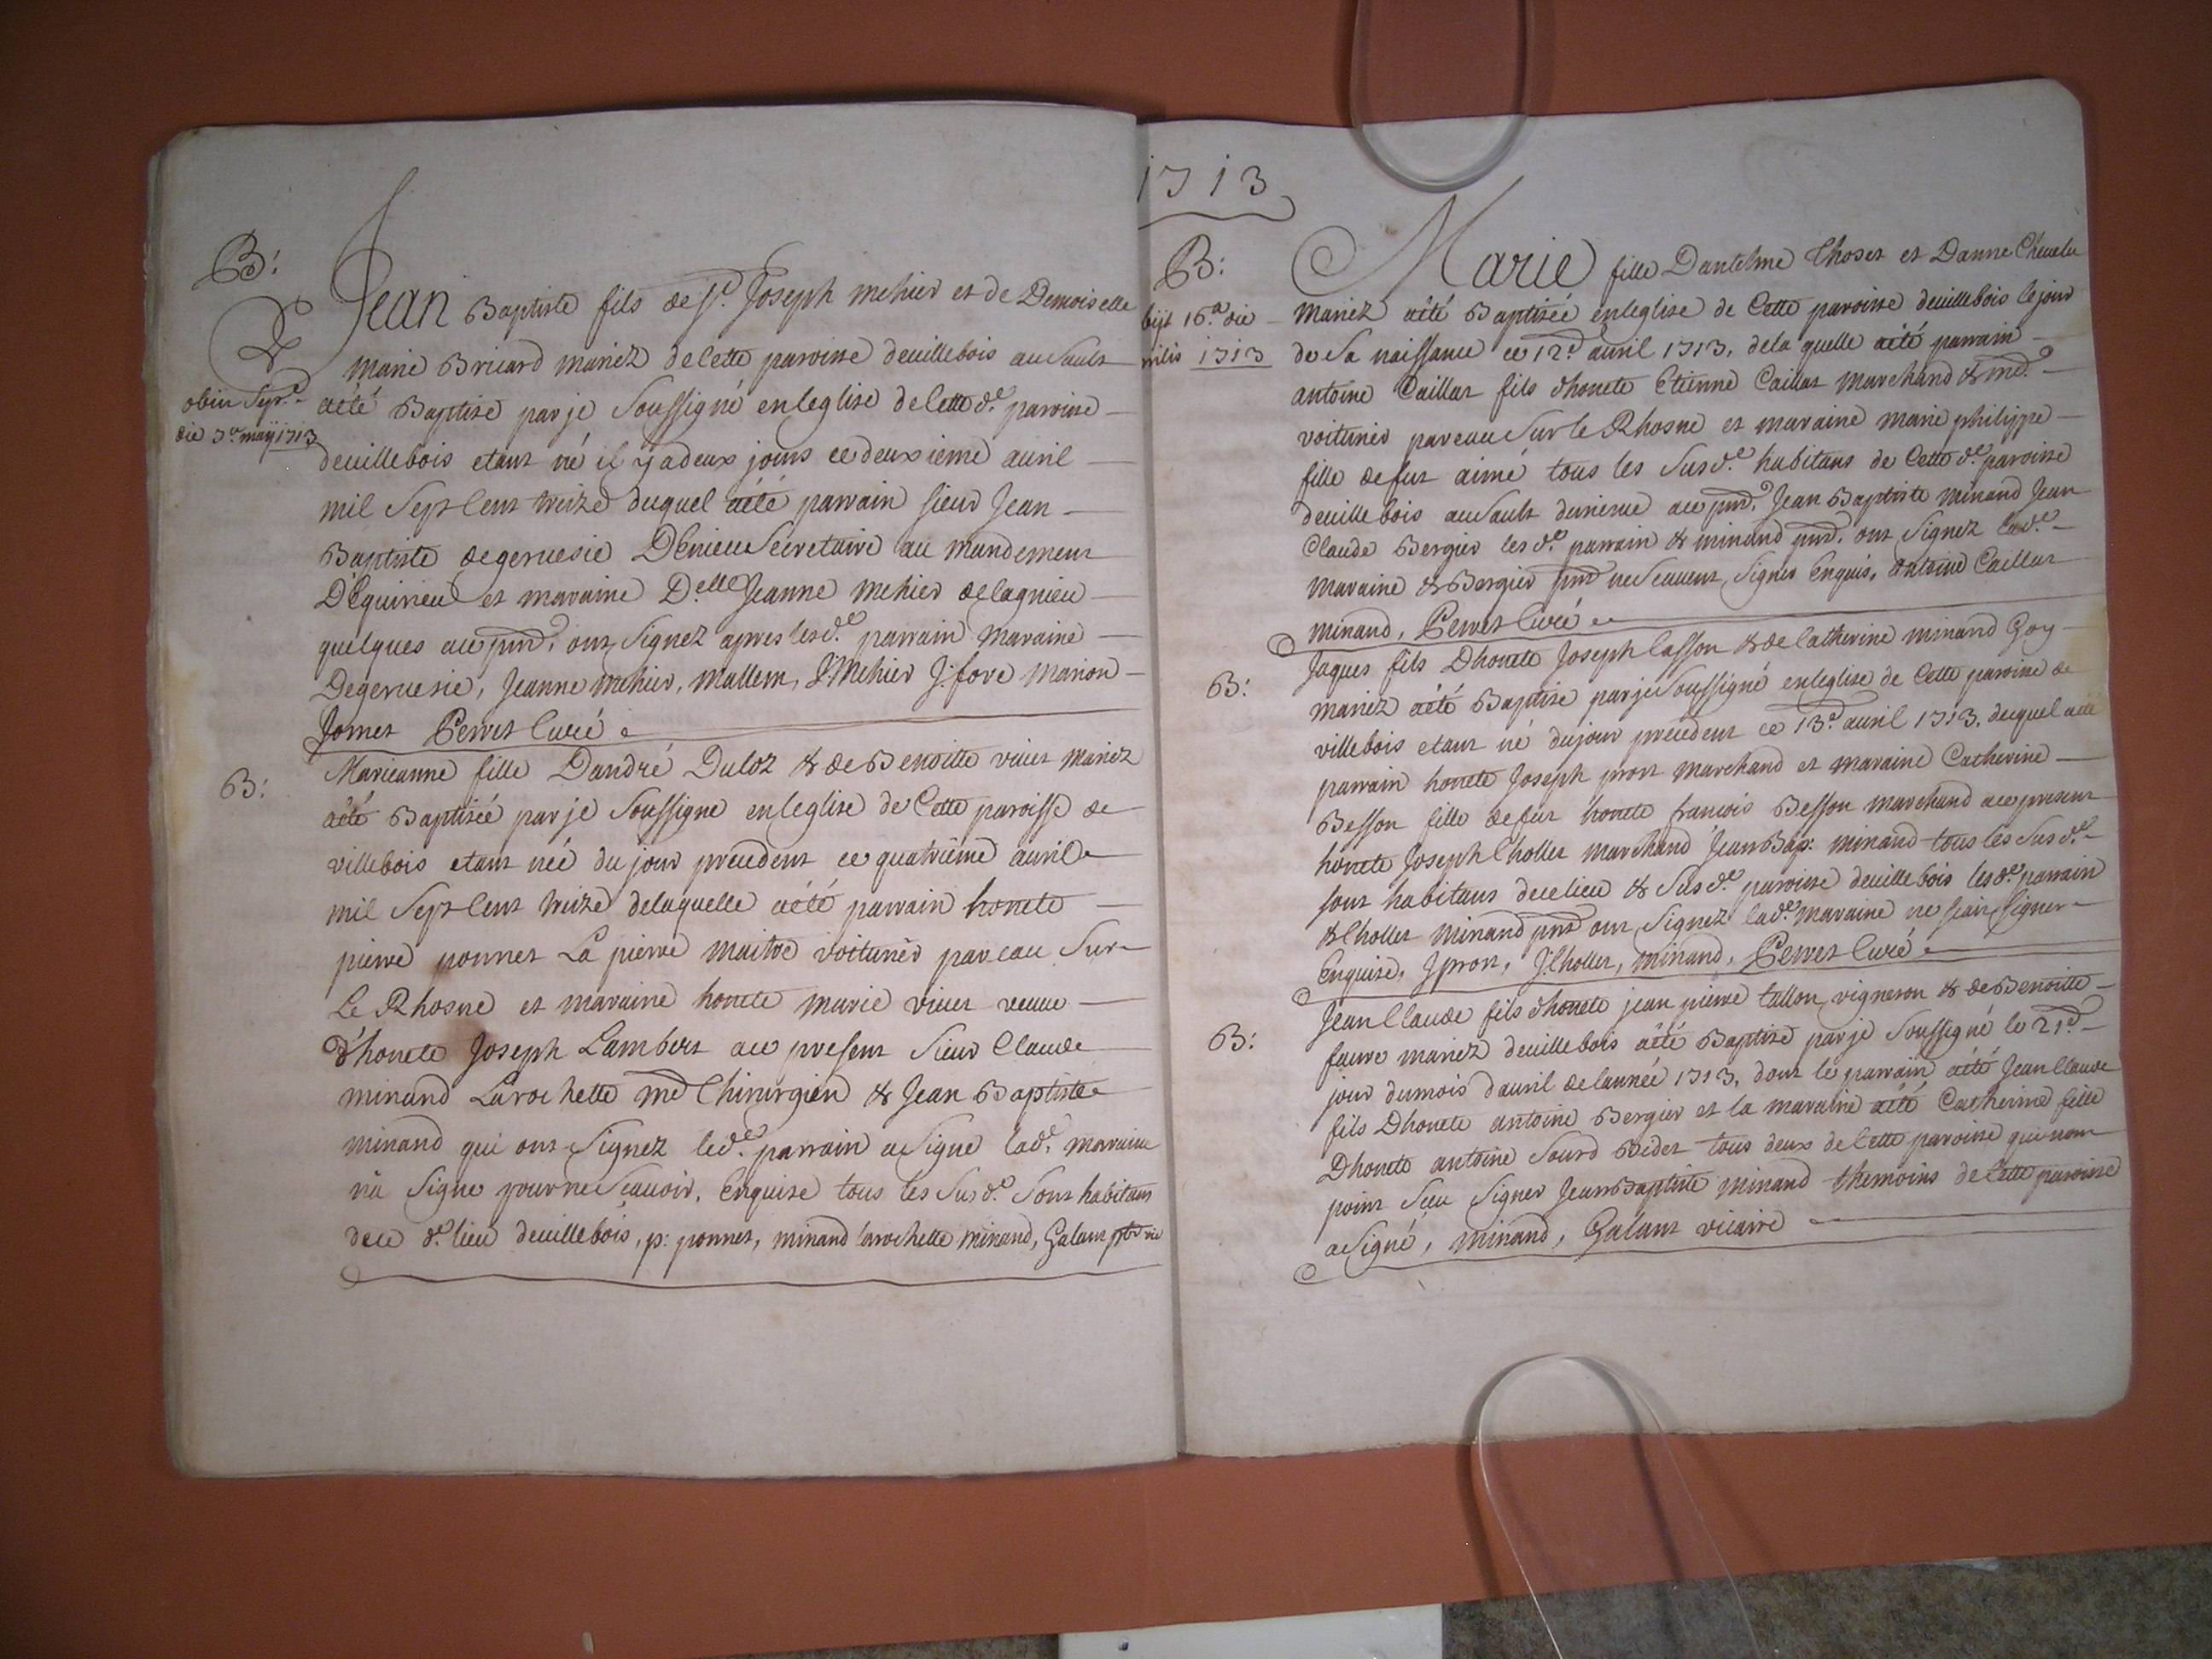 B:
Jean Baptiste fils de Sr. Joseph mehier et de Demoiselle
marie Bricard mariez de Cette paroisse de villebois au Sault
obiit Sepr.
die 3a maÿ 1713
aété Baptisé par je Soussigné en leglise de Cette de. paroisse
de villebois etant né il y a deux jours ce deuxieme avril
mil Sept Cent treize duquel aété parrain sieur Jean
Baptiste degeruesie Secretaire au mandement
D'Equirieu et maraine Delle Jeanne mehier de lagnieu
quelques au pnt. ont Signez apres lesde. parrain maraine
Degeruesie, Jeanne mehier, mallem, J: Mehier J: fore marion
Jomer Perret Curé
B:
Marieanne fille D'andré Duloz & de Benoitte viuier mariez
aété Baptiséé par je Soussigné en leglise de Cette paroisse de
villebois etant néé du jour precedent ce quatrième avril
mil Sept Cent treize de laquelle aété parrain honete
pierre ponnet La pierre maitre voiturier par eau Sur
Le Rhosne et maraine honete marie viuier veuue
d'honete Joseph Lambert au present Sieur Claude
minand Larochette me Chirurgien & Jean Baptiste
minand qui ont Signez led.e parrain a Signe lad.e maraine
na Signe pour ne Scauoir, Enquise tous les Susd.e Sont habitans
du d.e lieu de villebois, p: ponnet, minand larochette minand, Galant ptre vic
1713
B:
biit 16.a die
prilis 1713
Marie fille D'antelme Choset et D'anne Cheuelu
mariez aêté Baptiséé en leglise de Cette paroisse de villebois le jour
de Sa naissance ce 12.e auril 1713. de la quelle aété parrain
antoine Caillat fils d'honete Etienne Caillat marchand & me.
voiturier par eau Sur le Rhosne et maraine marie philippe
fille de fut aimé tous les Susd.e habitans de Cette d.e paroisse
de villebois au Sault au pnt. Jean Baptiste minand Jean
Claude Bergier les d.e parrain & minand pnt. ont Signez lad.e
maraine & Bergier pnt ne Scauent Signer Enquis, antoine Caillat
minand, Perret Curé
B:
Jaques fils D'honete Joseph Casson & de Catherine minand Goy
mariez aété Baptisé par je Soussigné en leglise de Cette paroisse de
villebois etant né du jour precedent ce 13.e auril 1713. duquel aété
parrain honete Joseph pront marchand et maraine Catherine
Besson fille de fut honete francois Besson marchand au present
honete Joseph Chollet marchand Jean Bap: minand tous les Susd.e
sont habitans de ce lieu & Susd.e paroisse de villebois les d.e parrain
& Chollet minand pnt ont Signez lad.e maraine ne scait signer
Enquise, J pront, J: Chollet, minand, Perret Curé
B:
Jean Claude fils d'honete jean pierre tallon vigneron & de Benoitte
faure mariez de villebois aété Baptisé par je Soussigné le 21.e
jour du mois d'auril de lannéé 1713. dont le parrain aété Jean Claude
fils D'honete antoine Bergier et la maraine aété Catherine fille
D'honete antoine Sourd Bidet tous deux de Cette paroisse qui nont
point Sceu Signer Jean Baptiste minand themoins de Cette paroisse
a Signé, minand, Galant vicaire